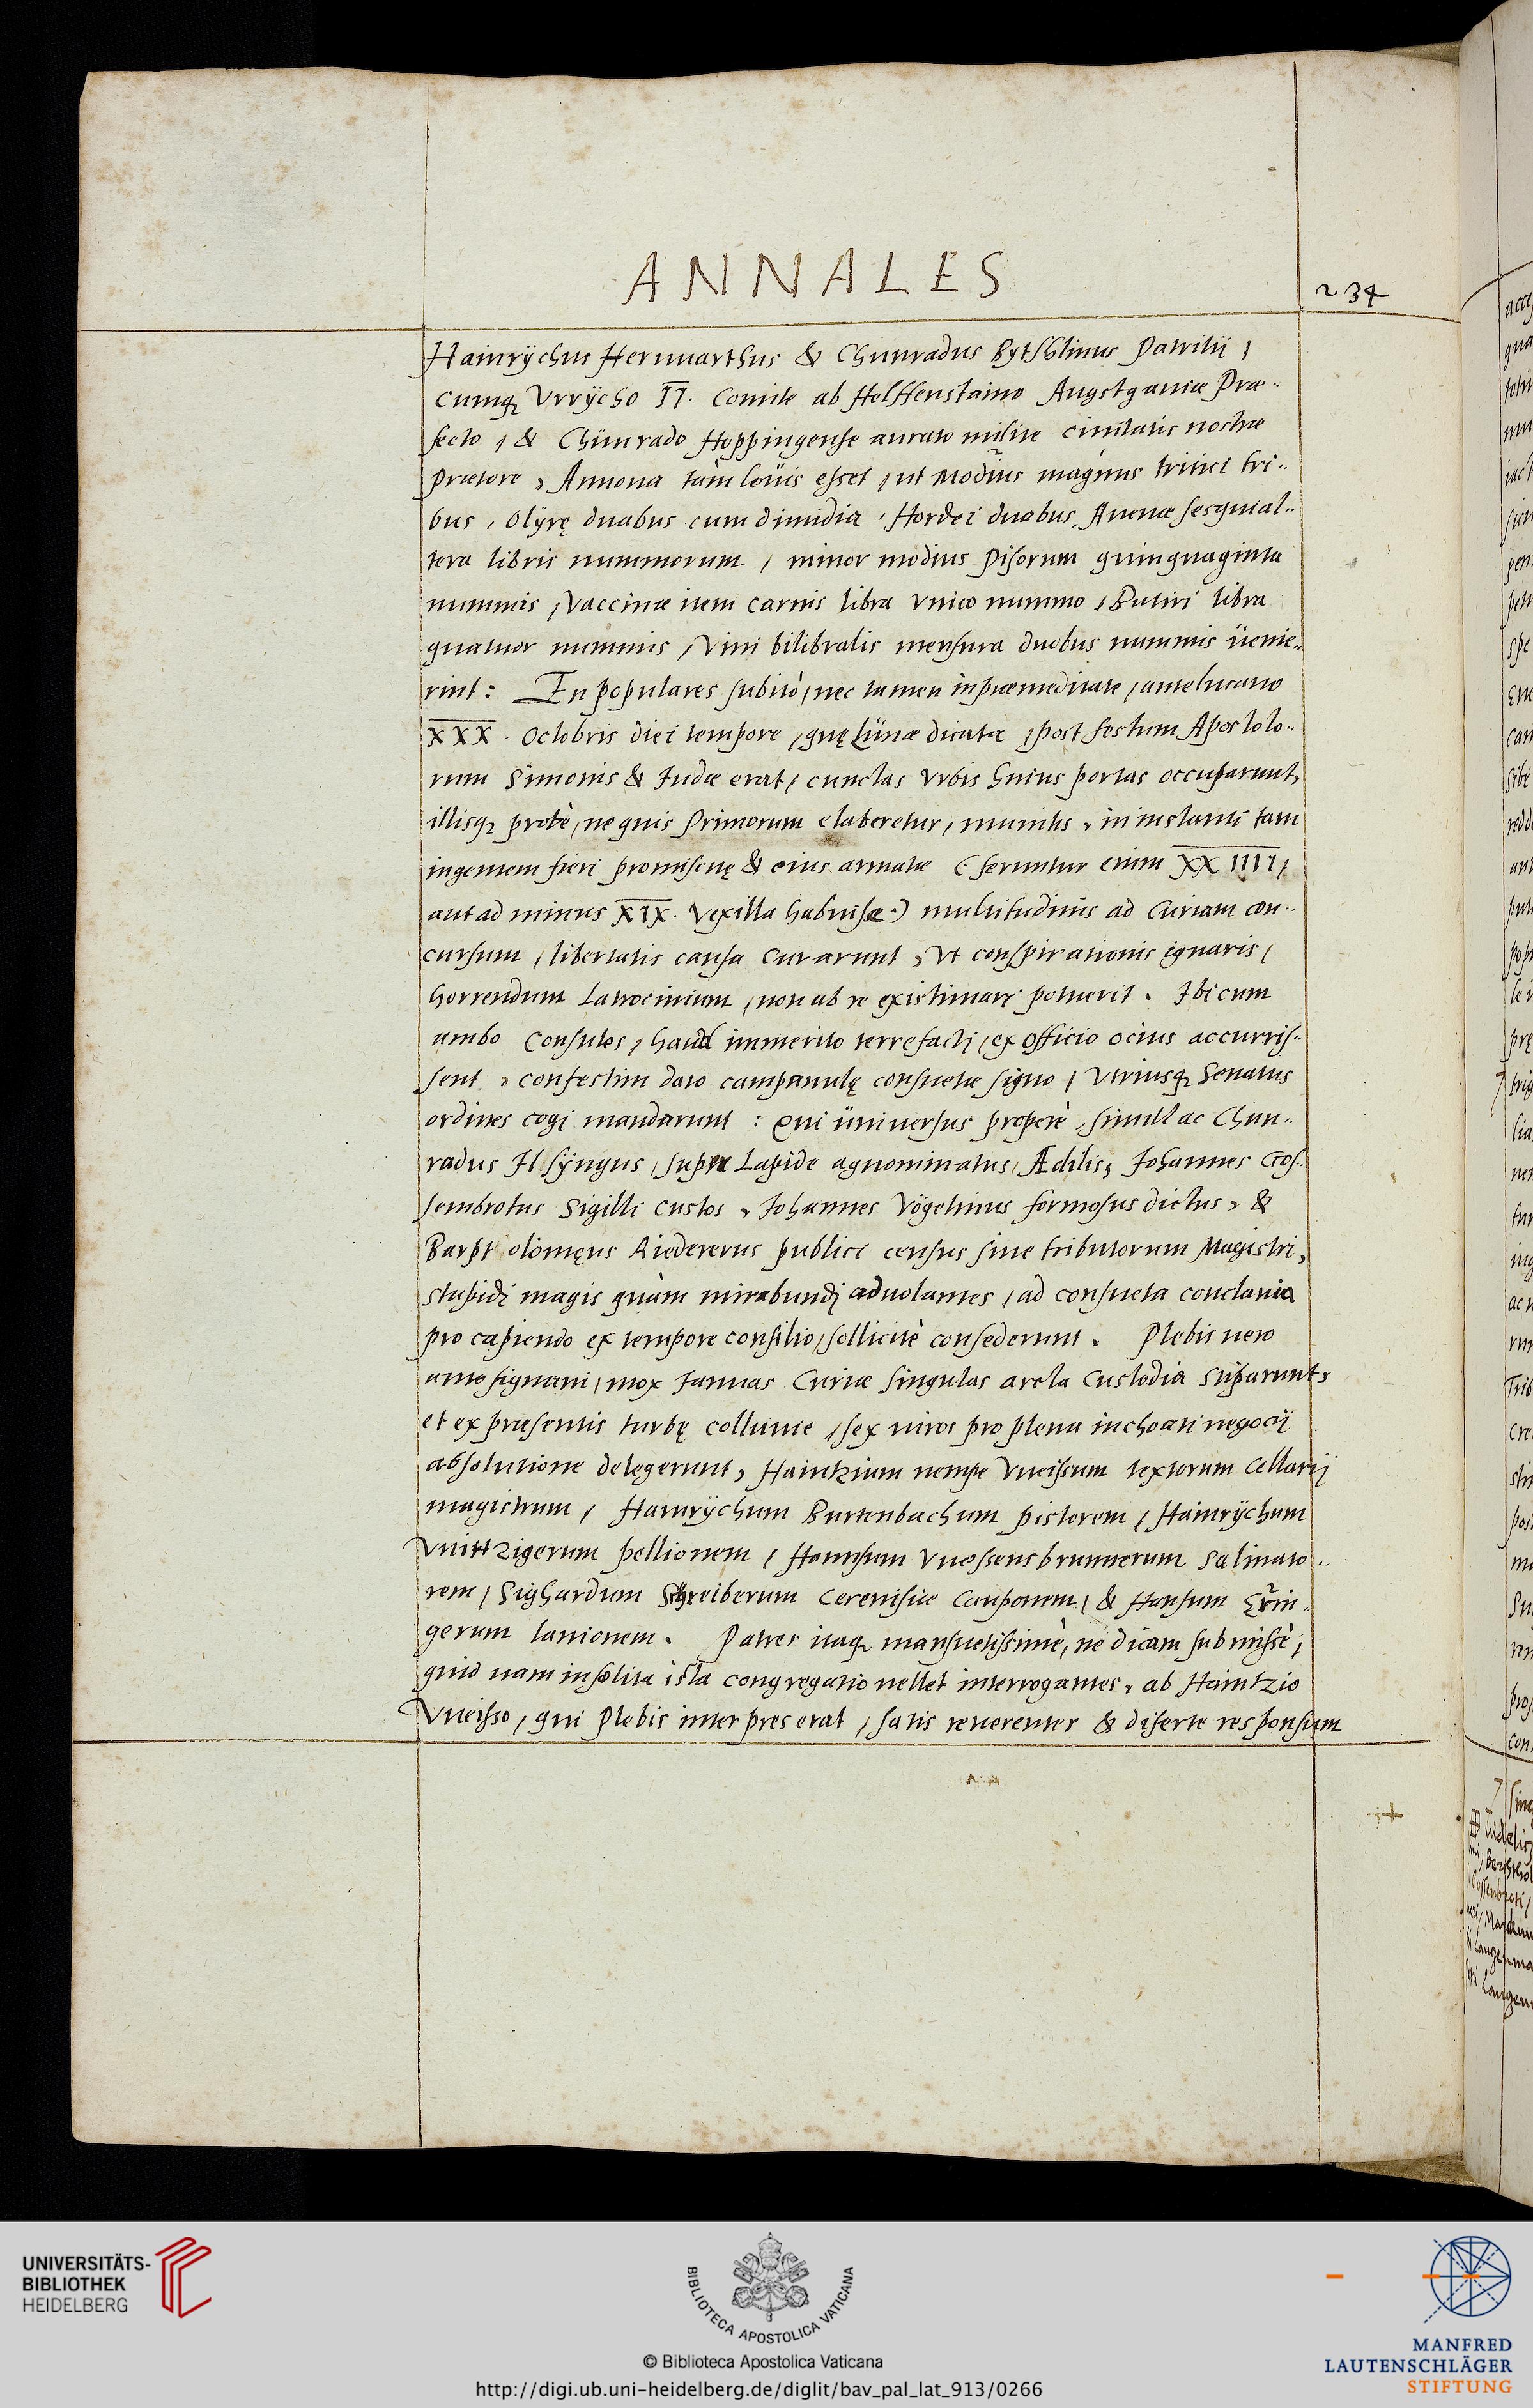 ANNALES
234
Hainrÿchus Hernuarthus & Chunradus Bytschlinus Patritii /
cumq; Vrrÿcho II. Comite ab Helffenstaino Augstgauiæ Præ..
fecto / & Chünrado Hoppingense aurato milite ciuitatis nostræ
prætore, Annona tàm leuis esset / ut Modius magnus tritici tri..
bus, Olÿrę duabus cum dimidia, Hordei duabus, Auenæ sesquial..
tera libris nummorum / minor modius pisorum quinquaginta
nummis / vaccinæ item carnis libra vnico nummo / Butiri libra
quatuor nummis / vini bilibralis mensura duobus nummis üenie..
rint: En populares subitò, nec tamen inpræmeditate / antelucano
XXX. Octobris diei tempore / quę Lünæ dicata / post festum Apostolo..
rum Simonis & Judæ erat / cunctas vrbis huius portas occuparunt,
illisq; probè, ne quis Primorum elaberetur, munitis, in instanti tam
ingentem fieri promiscuę & eius armatæ (feruntur enim XXIIII /
aut ad minus XIX. vexilla habuisse.) multitudinis ad Curiam con..
cursum / libertatis causa curarunt, vt conspirationis ignaris /
horrendum Latrocinium / non ab re existimari potuerit. Ibi cum
ambo Consules / haud immerito terrefacti / ex officio ocius accurris..
sent, confestim dato campanulę consuetæ signo / vtriusq; Senatus
ordines cogi mandarunt: Qui üniuersus properè, simul ac Chun..
radus Ilsÿngus / super Lapide agnominatus, Ædilis, Johannes Gos..
sembrotus Sigilli custos, Johannes Vögelinus formosus dictus, &
Barptolomęus Riedererus publici census siue tributorum Magistri,
stupidi magis quàm mirabundi aduolantes / ad consueta conclauia
pro capiendo ex tempore consilio / sollicitè consederunt. Plebis uero
antesignani / mox Januas Curiæ singulas arcta custodia stiparunt,
et ex præsentis turbę colluuie / sex uiros pro plena inchoati negocij
absolutione delegerunt, Haintzium nempe Vueissum textorum cellarij
magistrum / Hainrÿchum Burtenbachum pistorem / Hainrÿchum
Vuirtzigerum pellionem / Hannsum Vuessensbrunnerum salinato..
rem / Sighardum Schreiberum cereuisiæ Cauponem / & Hansum Erin..
gerum lanionem. Patres itaq; mansuetissimè, ne dicam submissè,
quid nam insolita ista congregatio uellet interrogantes, ab Haintzio
Vueisso, qui Plebis interpres erat / satis reuerenter & diserte responsum
UNIVERSITÄTS-
BIBLIOTHEK
HEIDELBERG
BIBLIOTECA APOSTOLICA VATICANA
© Biblioteca Apostolica Vaticana
http://digi.ub.uni-heidelberg.de/diglit/bav_pal_lat_913/0266
MANFRED
LAUTENSCHLÄGER
STIFTUNG